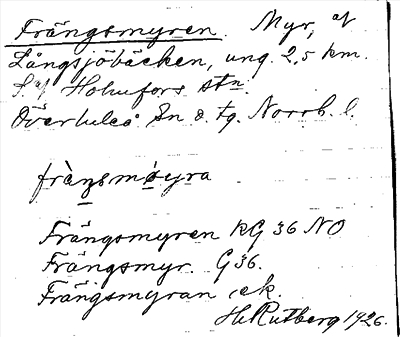 Frängsmyren. Myr, af
Långsjöbäcken, ung. 2,5 km.
S. af Holmfors stn.
Överluleå Sn o. tg. Norrb. l.
fràŋsmøyra
Frängsmyren KG 36 NO
Frängsmyr. G 36.
Frängsmyran, ek.
H. Rutberg 1926.